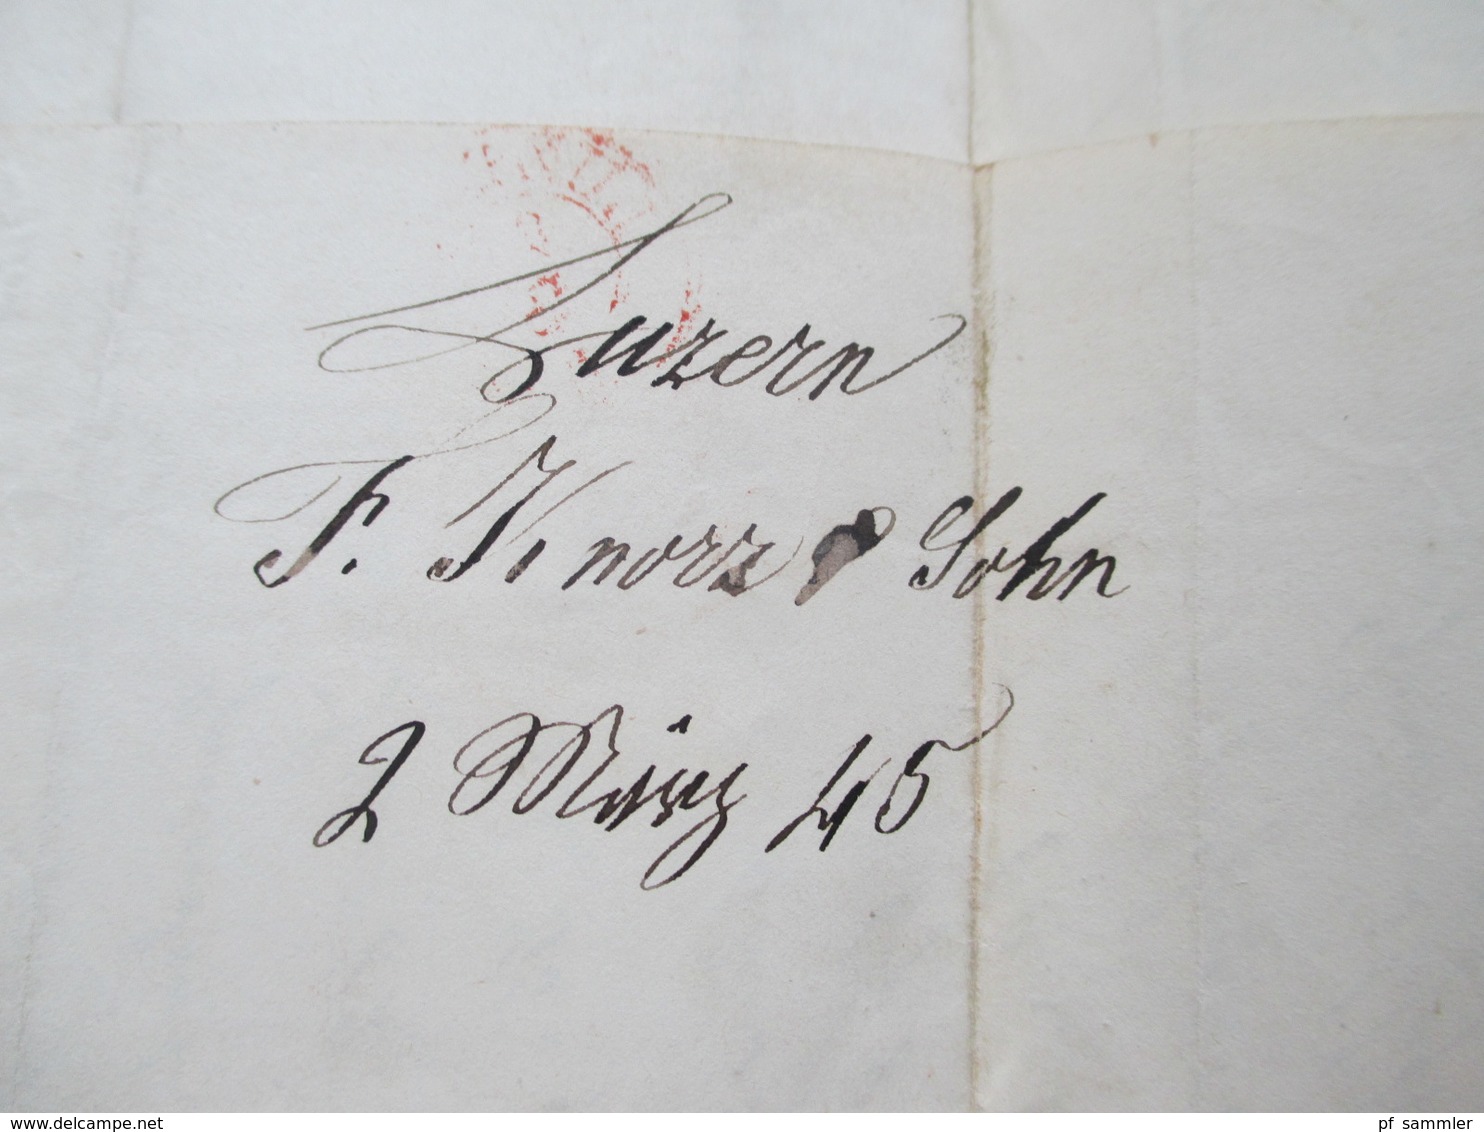 Luzern
F. Knorr & Sohn
2 März 45
www.delcampe.net
pf_sammler